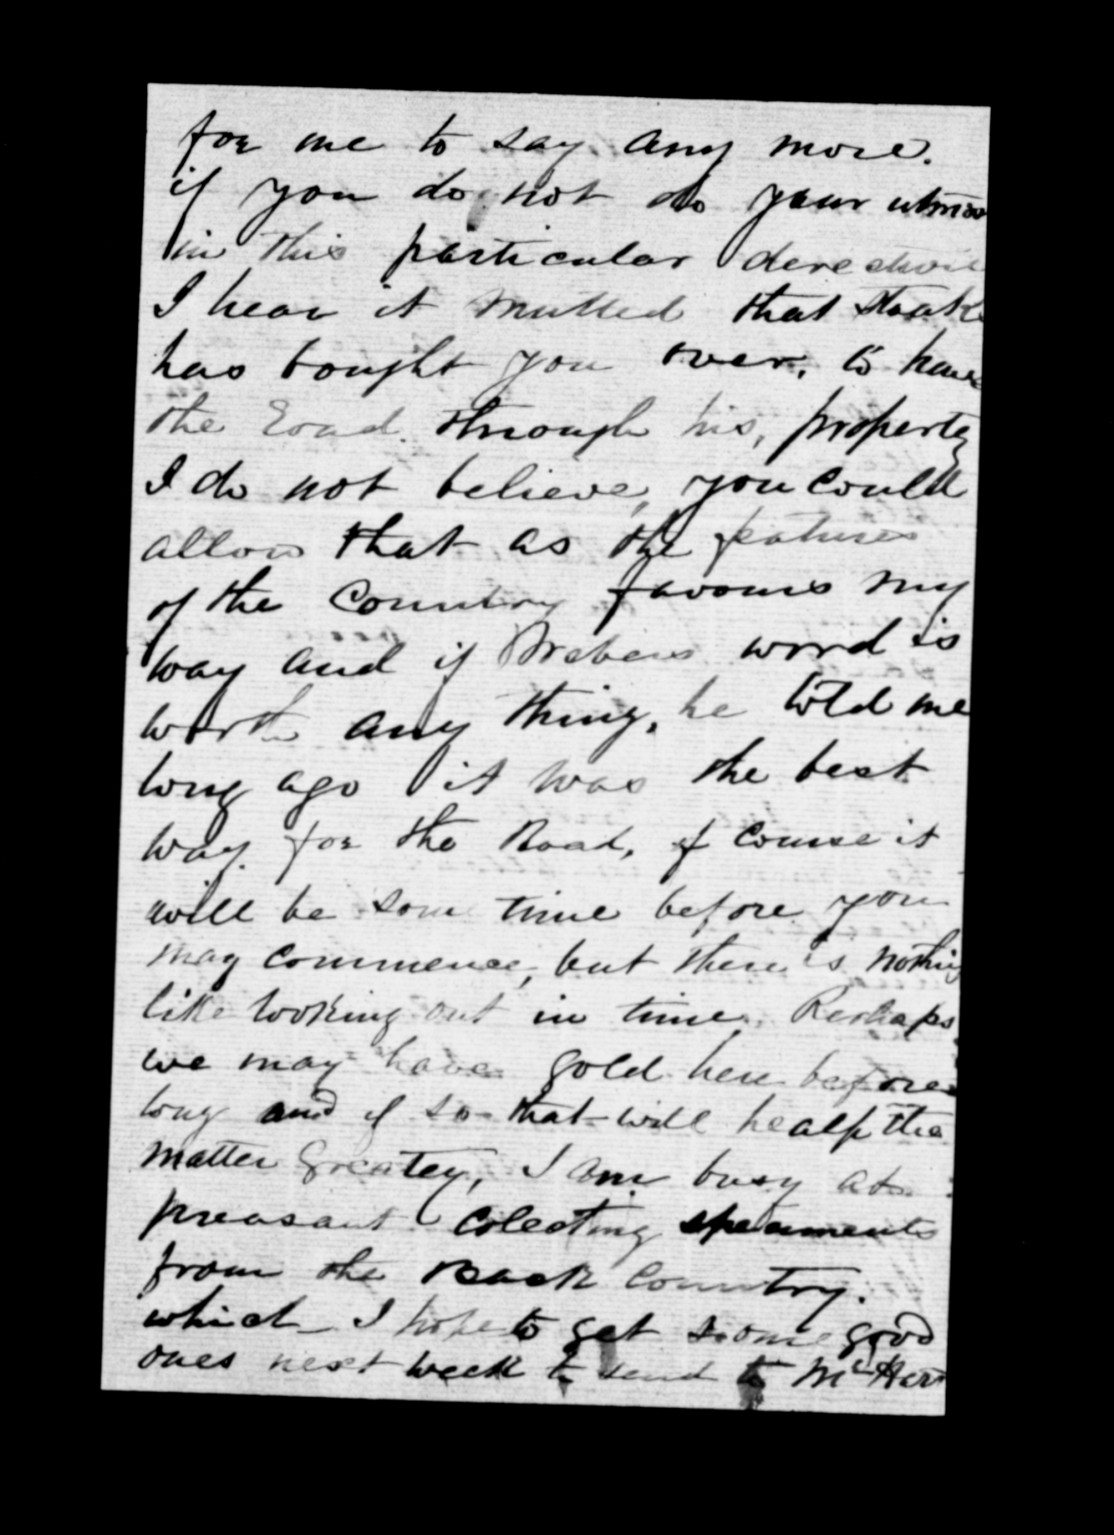 for me to say any more.
if you do not do your utmos
in this particular derection
I hear it mutted that
has bought you over, to have
the Road through his, property
I do not believe, you could
allow that as the features
of the Country favours my
way and if word is
worth any thing, he told me
long ago it was the best
way for the Road, of course it
will be some time before you
may commence, but there is nothing
like looking out in time. Perhaps
we may have gold here before
long and if so that will healp the
matter greatey, I am busy at
preasant Colecting speciments
from the Back Country.
which I hope to get some good
ones next week to send to